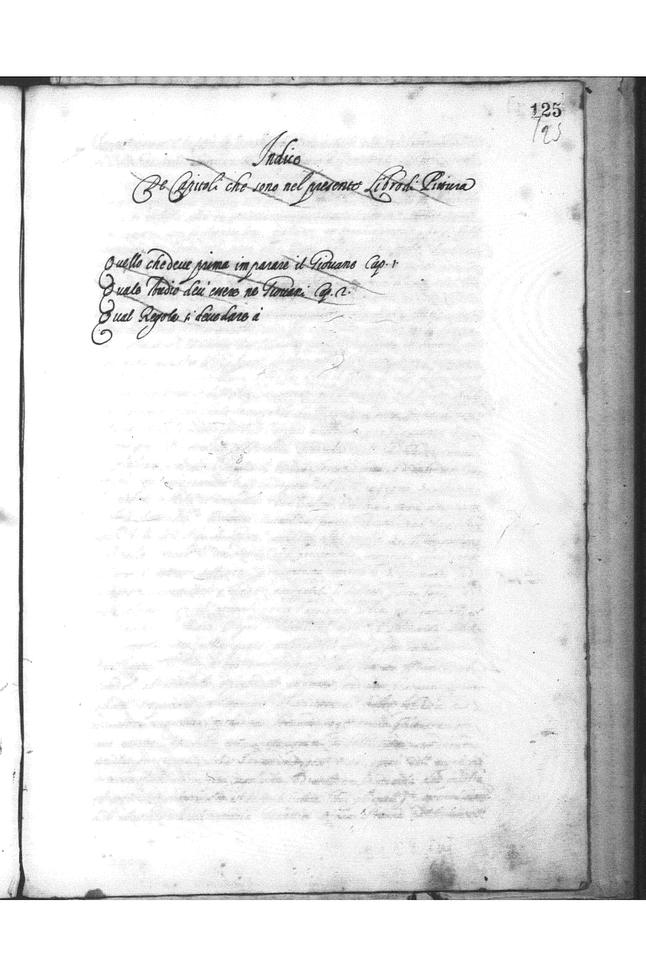 125
125
Indice
De Capitoli che sono nel presente Libro di Pittura
Quello che deve prima imparare il Giovane Cap. 1
Quale studio deu' essere ne Giovani Cap. 2.
Qual Regola si deve dare à